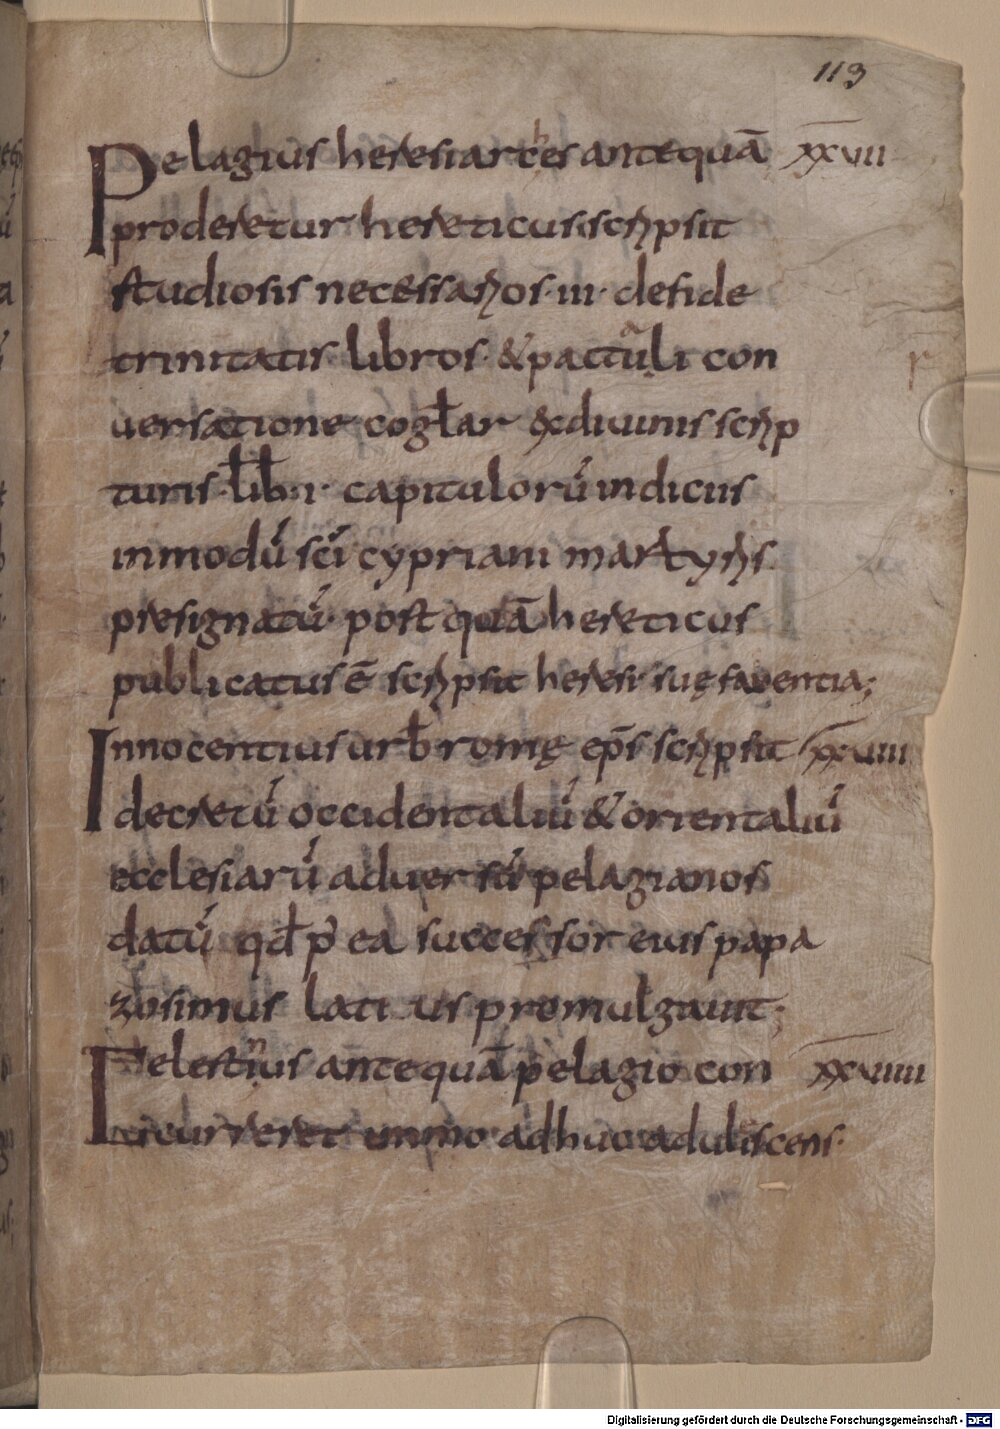 113
Pelagius heresiarches antequā XXVII
proderetur hereticus scripsit
studiosis necessarios · III · de fide
trinitatis libros · & pactuali con
uersatione cogłar & diuinis scrip
turis · lib · I · capitulorū indiciis
in modū sc̄i cypriani martyris
presignatū · post quā hereticus
publicatus ē scripsit heresi suę fauentia;
Innocentius urb̄ romę ep̄s scripsit XXVIII
decretū occidentaliū & orientaliū
ecclesiarū aduersū pelagianos
datū qđ p̄ ea successor eius papa
zosimus latius promulgauit;
Celestinus antequā pelagio con XXVIIII
curreret immo adhuc aduliscens ·
Digitalisierung gefördert durch die Deutsche Forschungsgemeinschaft - DFG